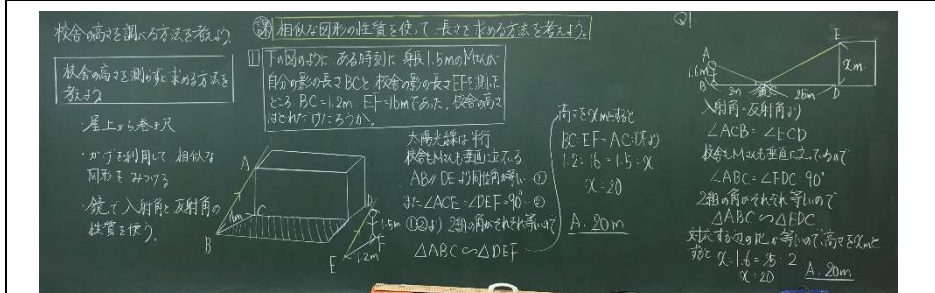 校舎の高さを調べる方法を考えよう。
校舎の高さを測らずに求める方法を
考えよう
・屋上から巻き尺
・かげを利用して、相似な
図形をみつける
・鏡で入射角と反射角の
性質を使う。
課 相似な図形の性質を使って、長さを求める方法を考えよう。
1 下の図のように、ある時刻に身長1.5mのMさんが
自分の影の長さBCと校舎の影の長さEFを測った
ところ BC=1.2m EF=16mであった。校舎の高さ
はどれだけだろうか。
A
B
C
D
E
F
1.5m
1.2m
太陽光線は平行
校舎もMさんも垂直に立っている
AB//DEより同位角が等しい ①
また∠ACE=∠DEF=90° ②
①②より 2組の角がそれぞれ等しいので
△ABC∽△DEF
高さをxmとすると
BC:EF=AC:DFより
1.2:16=1.5:x
x=20
A. 20m
Q1.
A
1.6m
B
2m
鏡C
25m
D
E
xm
入射角=反射角より
∠ACB=∠ECD
校舎もMさんも垂直に立っているので
∠ABC=∠EDC=90°
2組の角がそれぞれ等しいので
△ABC∽△EDC
対応する辺の比が等しいので、高さをxmと
すると x:1.6=25:2
x=20
A. 20m